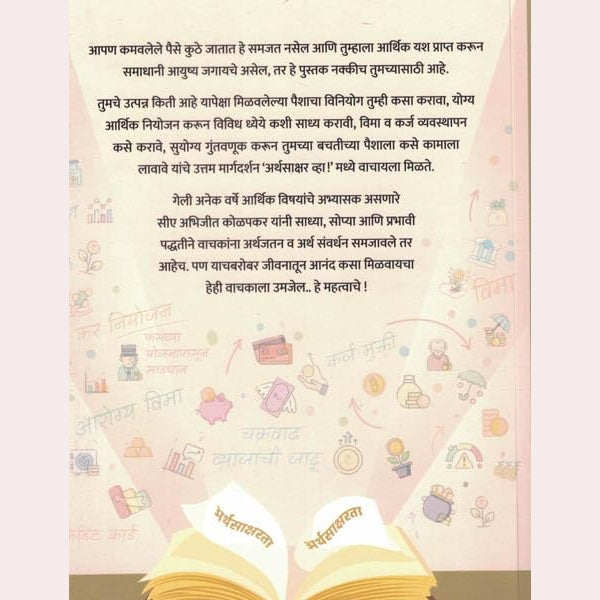 आपण कमवलेले पैसे कुठे जातात हे समजत नसेल आणि तुम्हाला आर्थिक यश प्राप्त करून
समाधानी आयुष्य जगायचे असेल, तर हे पुस्तक नक्कीच तुमच्यासाठी आहे.
तुमचे उत्पन्न किती आहे यापेक्षा मिळवलेल्या पैशाचा विनियोग तुम्ही कसा करावा, योग्य
आर्थिक नियोजन करून विविध ध्येये कशी साध्य करावी, विमा व कर्ज व्यवस्थापन
कसे करावे, सुयोग्य गुंतवणूक करून तुमच्या बचतीच्या पैशाला कसे कामाला
लावावे यांचे उत्तम मार्गदर्शन 'अर्थसाक्षर व्हा!' मध्ये वाचायला मिळते.
गेली अनेक वर्षे आर्थिक विषयांचे अभ्यासक असणारे
सीए अभिजीत कोळपकर यांनी साध्या, सोप्या आणि प्रभावी
पद्धतीने वाचकांना अर्थजतन व अर्थ संवर्धन समजावले तर
आहेच. पण याचबरोबर जीवनातून आनंद कसा मिळवायचा
हेही वाचकाला उमजेल.. हे महत्वाचे !
विमा
कर नियोजन
फसव्या
योजनापासून
सावधान
कर्ज मुक्ती
आरोग्य विमा
चक्रवाढ
व्याजाची जादू
क्रेडिट कार्ड
अर्थसाक्षरता
अर्थसाक्षरता